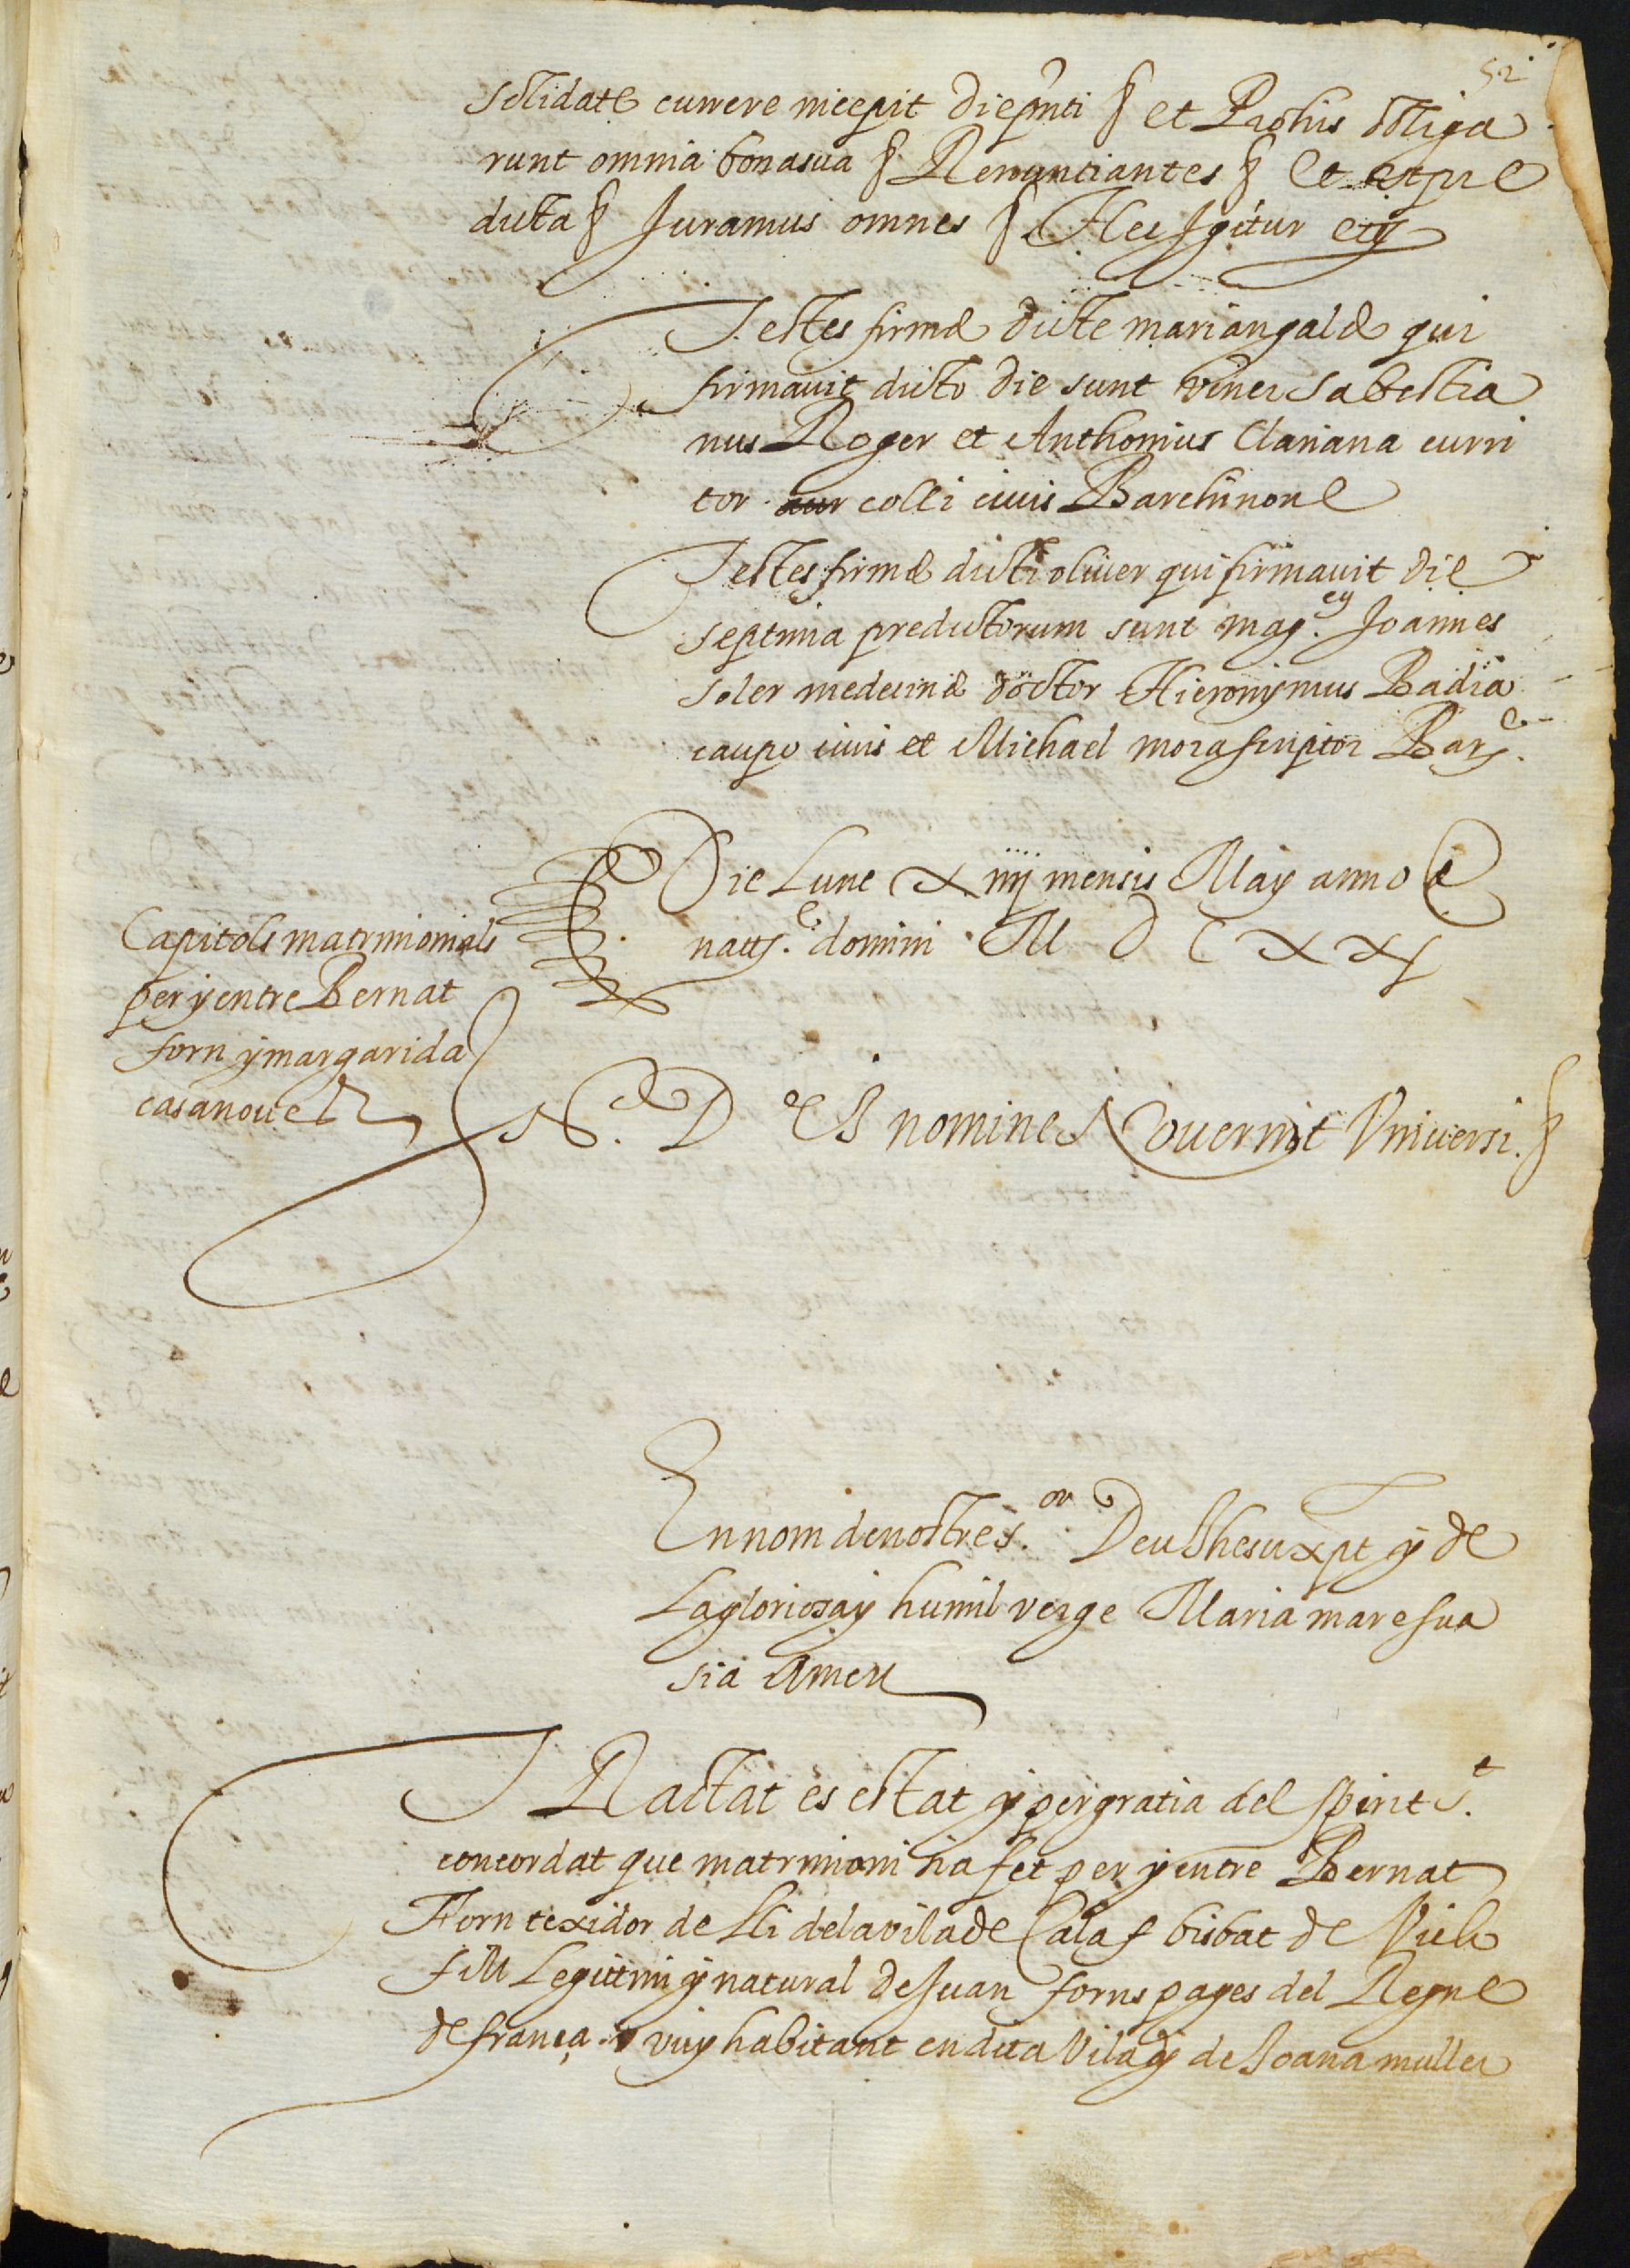 52
solidate currere incepit die p'nti § et Pro his obliga
runt omnia bona sua § Renuntiantes § et ut pre
dicta § Juramus omnes § Hec Igitur etc
Testes firmæ dicte mariangalæ qui
firmavit dicto die sunt viner Sabestia
nus Roger et Anthonius Clariana curri
tor colli civis Barchinone
Testes firmæ dicti oliver qui firmavit die
septima predictorum sunt mag.ci Joannes
soler medicinæ doctor Hieronymus Badia
caupo civis et Michael mora scriptor Bar.e
Die Lune xiiij mensis May anno a
nat.e domini M D C xx j
Capitols matrimonials
per y entre Bernat
forn y margarida
casanove
N. D eIs nomine Noverint Universi. §
En nom de nostre s.or Deu Jhesu xpt y de
La gloriosa y humil verge Maria mare sua
sia Amen
TRactat es estat y per gratia del spirit S.t
concordat que matrimoni sia fet per y entre Bernat
Forn texidor de lli de la vila de Calaf bisbat de Vich
fill Legittim y natural de Juan forns pages del Regne
de frança vuy habitant en dita vila y de Joana muller